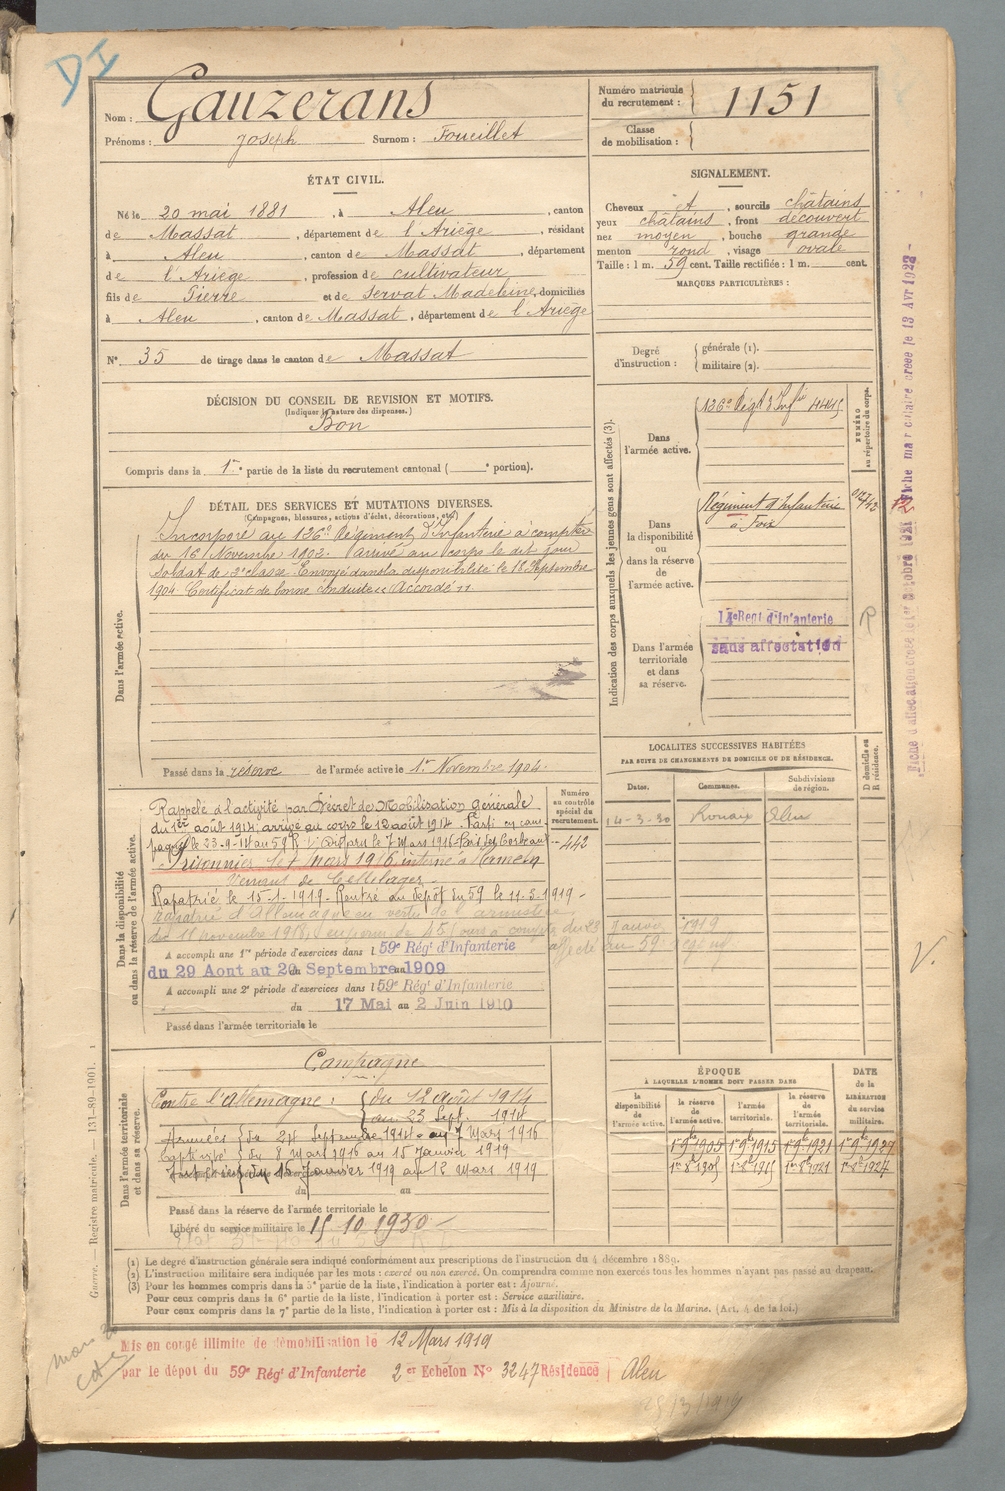 DI
Nom : Gauzerans
Prénoms : Joseph Surnom : Foueillet
Numéro matricule du recrutement : 1151
Classe de mobilisation :
ÉTAT CIVIL.
Né le 20 mai 1881, à Aleu, canton
de Massat, département de l'Ariège, résidant
à Aleu, canton de Massat, département
de l'Ariège, profession de cultivateur
fils de Pierre et de Servat Madeleine, domiciliés
à Aleu, canton de Massat, département de l'Ariège
N° 35 de tirage dans le canton de Massat
SIGNALEMENT.
Cheveux et, sourcils châtains
yeux châtains, front découvert
nez moyen, bouche grande
menton rond, visage ovale
Taille : 1 m. 59 cent. Taille rectifiée : 1 m. cent.
MARQUES PARTICULIÈRES :
Degré d'instruction : générale (1).
militaire (2).
DÉCISION DU CONSEIL DE REVISION ET MOTIFS.
(Indiquer la nature des dispenses.)
Bon
Compris dans la 1re partie de la liste du recrutement cantonal ( e portion).
DÉTAIL DES SERVICES ET MUTATIONS DIVERSES.
(Campagnes, blessures, actions d'éclat, décorations, etc.)
Dans l'armée active.
Incorporé au 126e Régiment d'Infanterie à compter
du 16 Novembre 1902. Arrivé au corps le dit jour
Soldat de 2e classe. Envoyé dans la disponibilité le 18 Septembre
1904. Certificat de bonne conduite "Accordé".
Passé dans la réserve de l'armée active le 1er Novembre 1904.
Indication des corps auxquels les jeunes gens sont affectés (3).
NUMÉRO au répertoire du corps.
Dans l'armée active.
126e Régt d'Infie 4445
Dans la disponibilité ou dans la réserve de l'armée active.
Régiment d'Infanterie
à Foix
Dans l'armée territoriale et dans sa réserve.
14e Regt d'Infanterie
sans affectation
R
LOCALITÉS SUCCESSIVES HABITÉES
PAR SUITE DE CHANGEMENTS DE DOMICILE OU DE RÉSIDENCE.
D domicile ou R résidence.
Dates. Communes. Subdivisions de région.
14-3-30 Aleu
Dans la disponibilité ou dans la réserve de l'armée active.
Numéro au contrôle spécial du recrutement.
442
Rappelé à l'activité par Décret de Mobilisation générale
du 1er août 1914, arrivé au corps le 12 août 1914. Parti en cam
pagne le 23-9-14 au 59 R I Disparu le 7 Mars 1916 Bois des Corbeaux
Prisonnier le 7 Mars 1916 interné à
venant de
Rapatrié le 15-1-1919 - Rentré au dépôt du 59 le 11-3-1919 -
rapatrié d'Allemagne en vertu de l'armistice
du 11 novembre 1918, en perm de 45 jours à compter du 23 Janvier 1919
affecté au 59
A accompli une 1re période d'exercices dans le 59e Régt d'Infanterie
du 29 Aout au 20 Septembre 1909
A accompli une 2e période d'exercices dans le 59e Régt d'Infanterie
du 17 Mai au 2 Juin 1910
Passé dans l'armée territoriale le
V.
Dans l'armée territoriale et dans sa réserve.
Campagne
Contre l'Allemagne : du 12 août 1914
au 23 Sept. 1914
Armées du 24 Septembre 1914 au 7 Mars 1916
Captivité du 8 Mars 1916 au 15 Janvier 1919
Intérieur du 16 Janvier 1919 au 12 Mars 1919
du au
Passé dans la réserve de l'armée territoriale le
Libéré du service militaire le 15-10-1930
ÉPOQUE
À LAQUELLE L'HOMME DOIT PASSER DANS
la disponibilité de l'armée active.
la réserve de l'armée active.
l'armée territoriale.
la réserve de l'armée territoriale.
DATE de la LIBÉRATION du service militaire.
1er 9bre 1905 1er 9bre 1915 1er 9bre 1921 1er 9bre 1927
1er 8bre 1905 1er 8bre 1915 1er 8bre 1921 1er 8bre 1927
(1) Le degré d'instruction générale sera indiqué conformément aux prescriptions de l'instruction du 4 décembre 1889.
(2) L'instruction militaire sera indiquée par les mots : exercé ou non exercé. On comprendra comme non exercés tous les hommes n'ayant pas passé au drapeau.
(3) Pour les hommes compris dans la 5e partie de la liste, l'indication à porter est : Ajourné.
Pour ceux compris dans la 6e partie de la liste, l'indication à porter est : Service auxiliaire.
Pour ceux compris dans la 7e partie de la liste, l'indication à porter est : Mis à la disposition du Ministre de la Marine. (Art. 4 de la loi.)
Guerre. — Registre matricule. — 131-89-1901. 1
Mis en congé illimité de démobilisation le 12 Mars 1919
par le dépôt du 59e Régt d'Infanterie 2er Echelon No 3247 Résidence Aleu